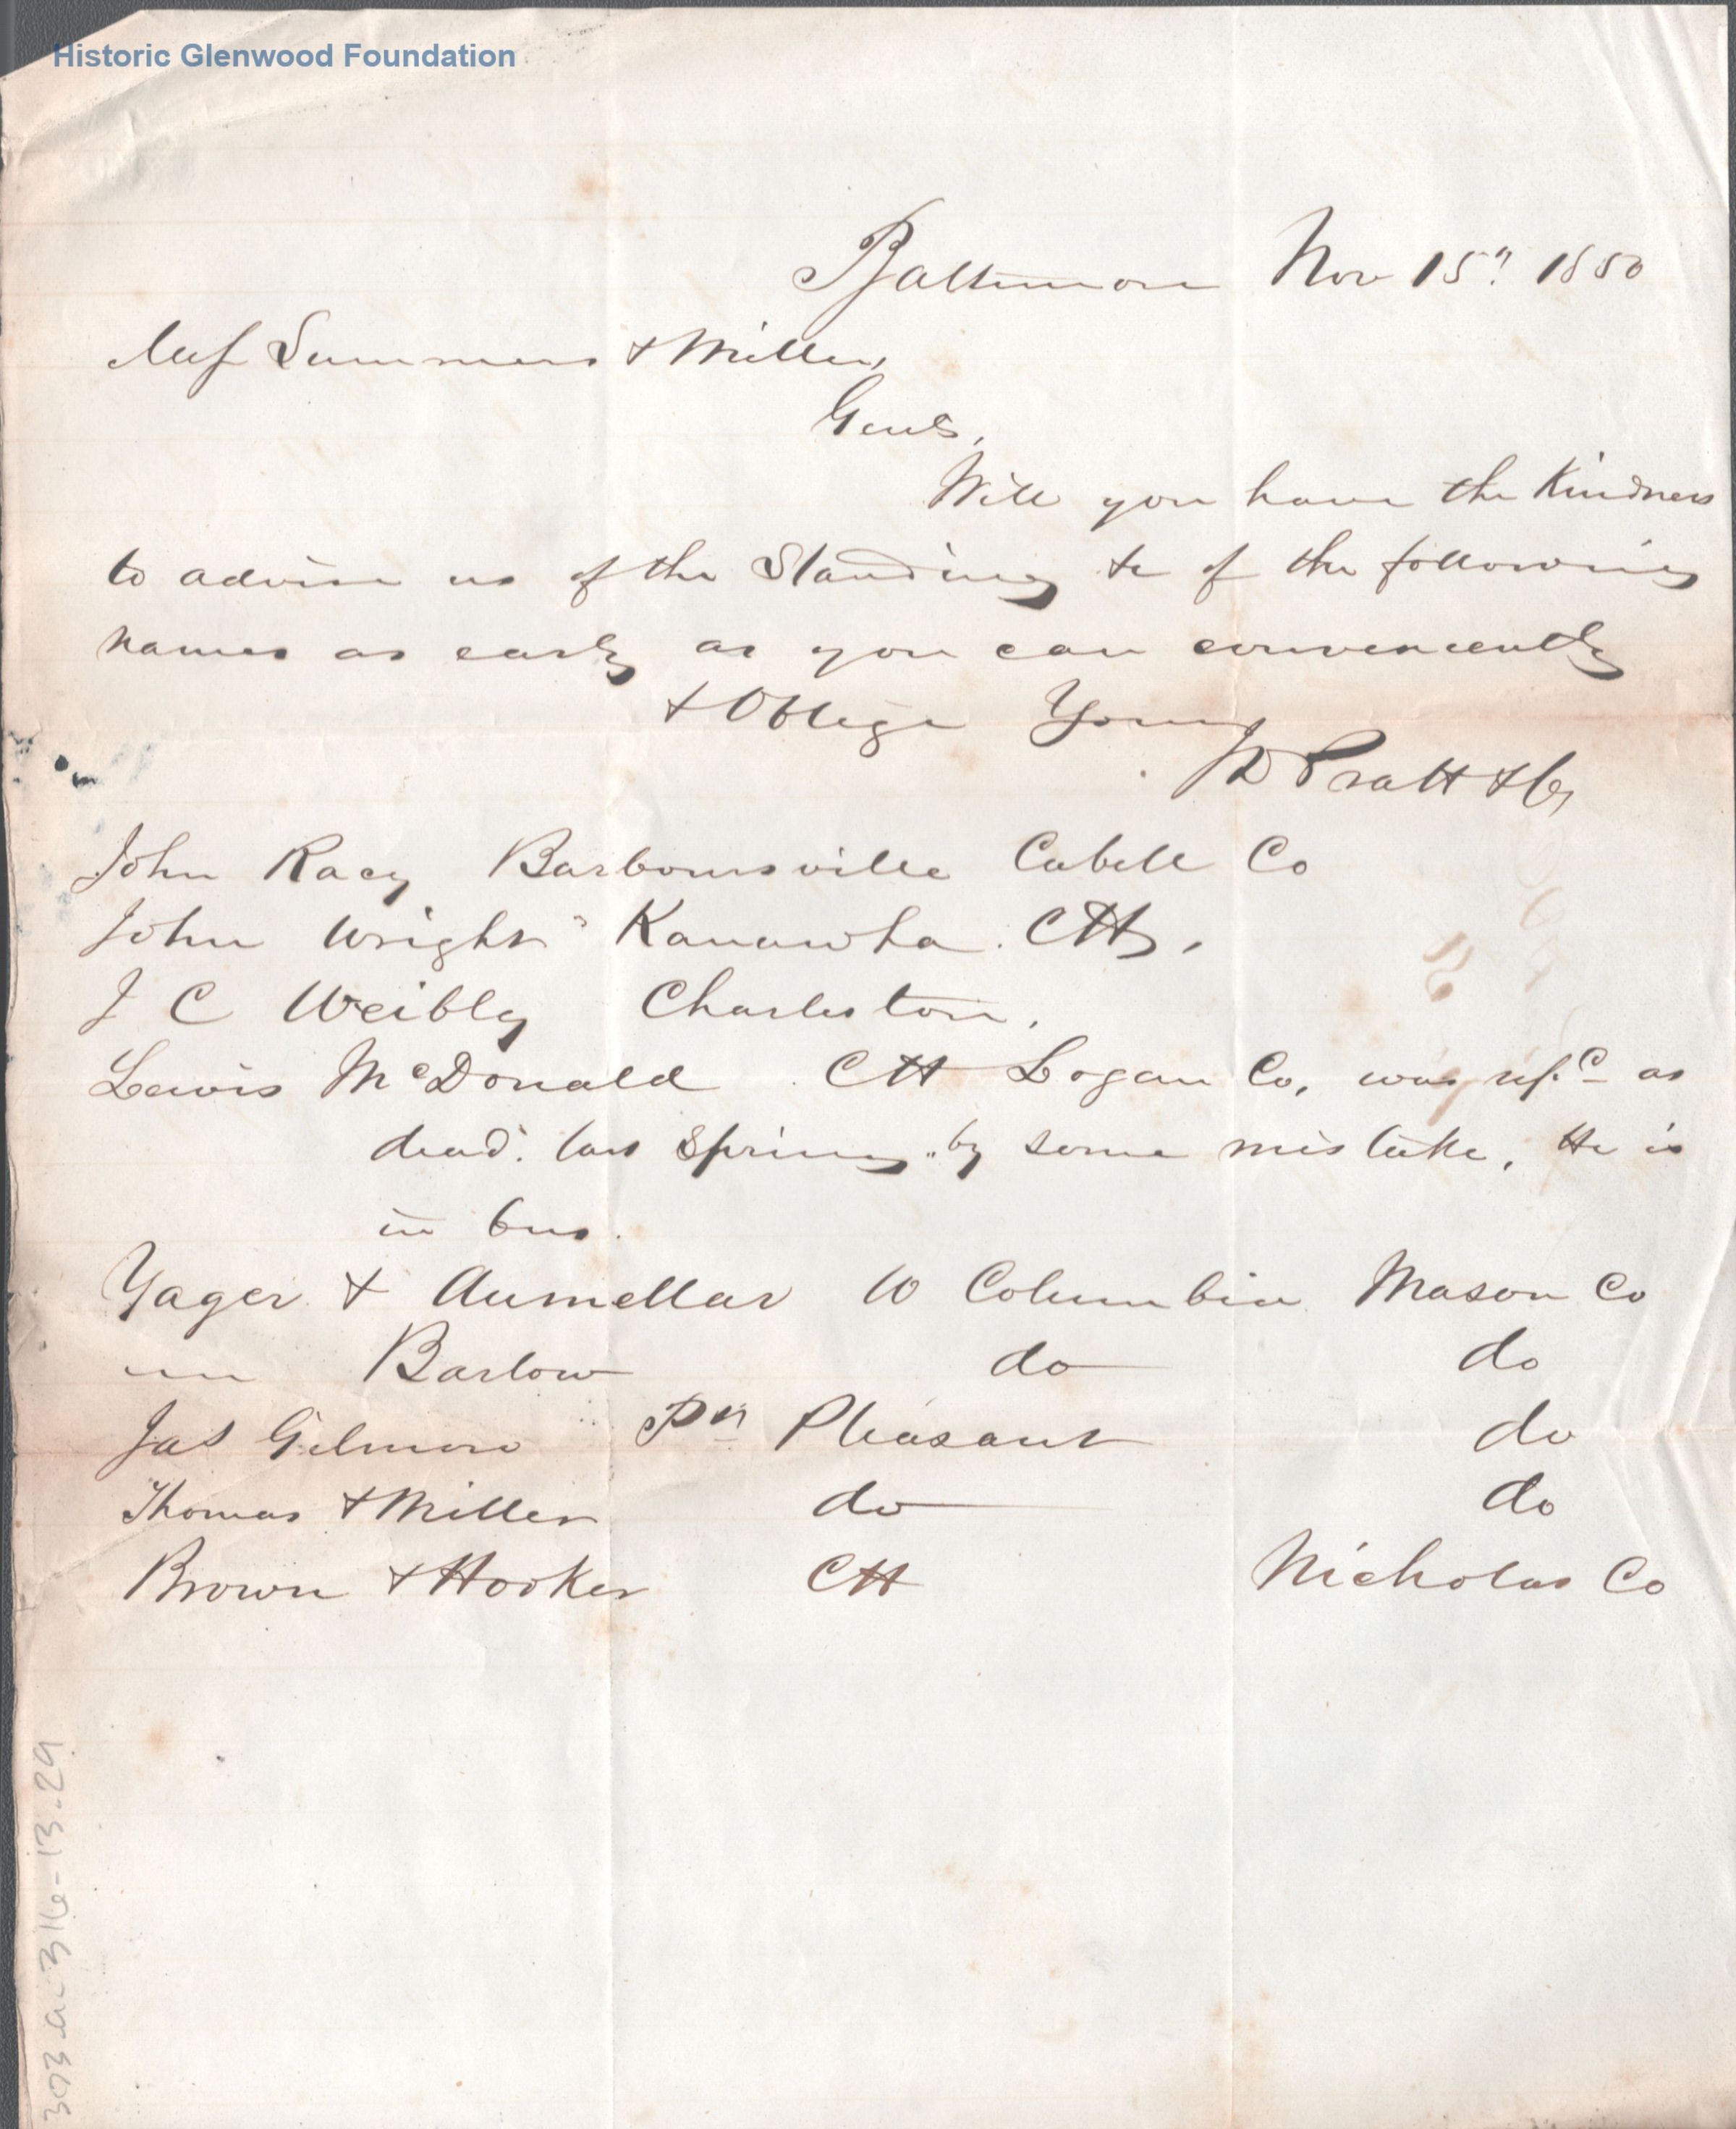 Historic Glenwood Foundation
Baltimore Nov 15" 1850
Mess Summers & Miller,
Gents,
Will you have the Kindness
to advise us of the Standing &c of the following
names as early as you can conveniently
& Oblige Yours
JD Pratt & Co
John Racy Barboursville Cabell Co
John Wright Kanawha CH,
J C Weibly Charleston,
Lewis McDonald CH Logan Co, was as
dead last Spring by some mistake. He is
in bus.
Yager & Aumellar W Columbia Mason Co
Barlow do do
Jas Gilmore Pt Pleasant do
Thomas & Miller do do
Brown & Hooker CH Nicholas Co
303 a-316-13.29